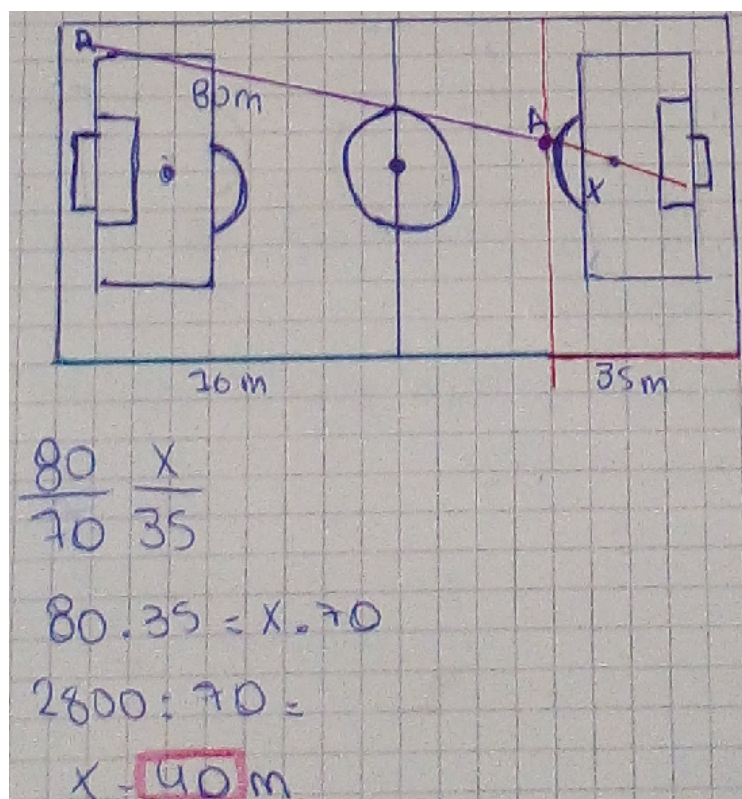 A
80m
A
X
70m
35m
80 X
70 35
80.35 = X.70
2800: 70 =
X = 40 m